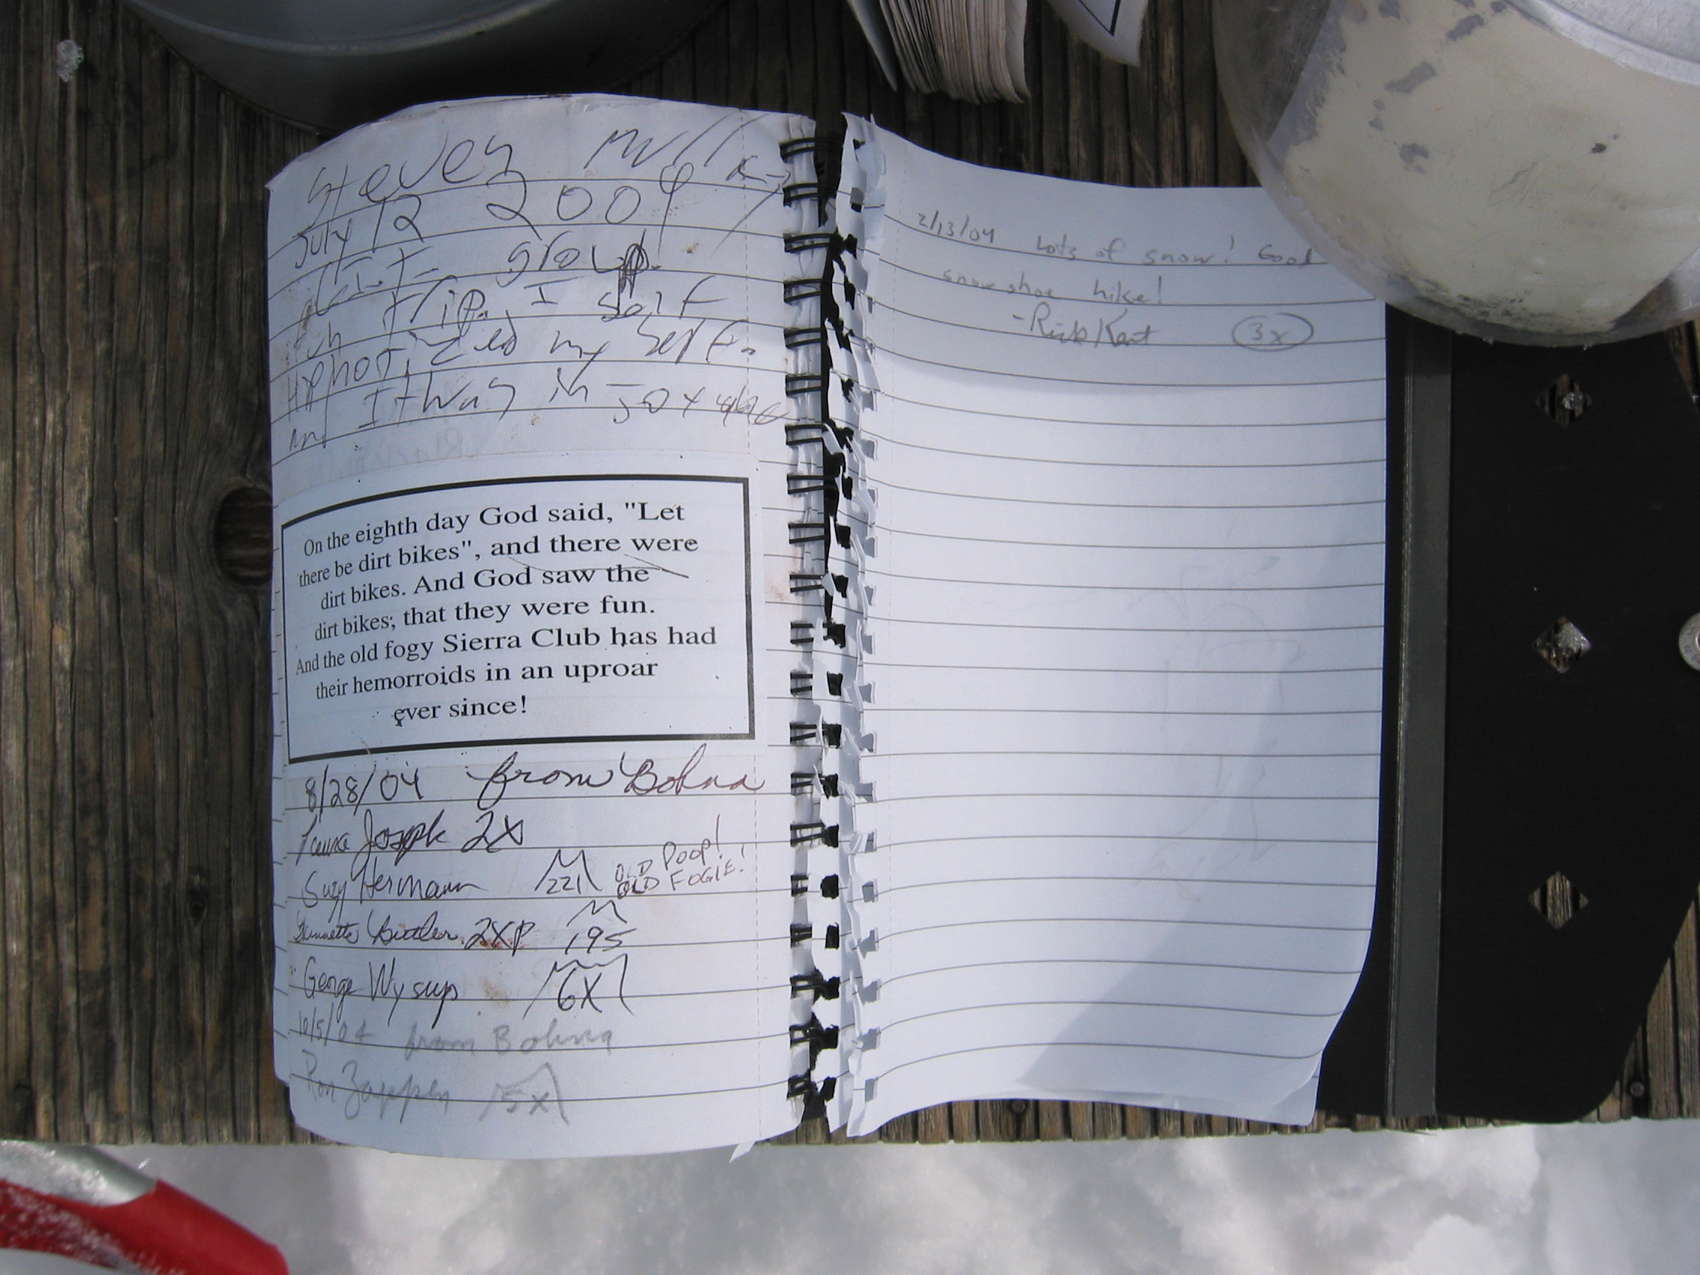 Steven
July 12 2004
group
trip. I self
my self.
and It was in
On the eighth day God said, "Let
there be dirt bikes", and there were
dirt bikes. And God saw the
dirt bikes; that they were fun.
And the old fogy Sierra Club has had
their hemorroids in an uproar
ever since!
8/28/04 from Bohna
Joseph 2X
Suzy Hermann 221 OLD POOP!
OLD FOGIE!
Butler 2XP 195
George Wysup 6X
10/5/04 from Bohna
Ron Zappen 5X
2/13/04 Lots of snow! Good
snow shoe hike!
-Rick Kent 3x